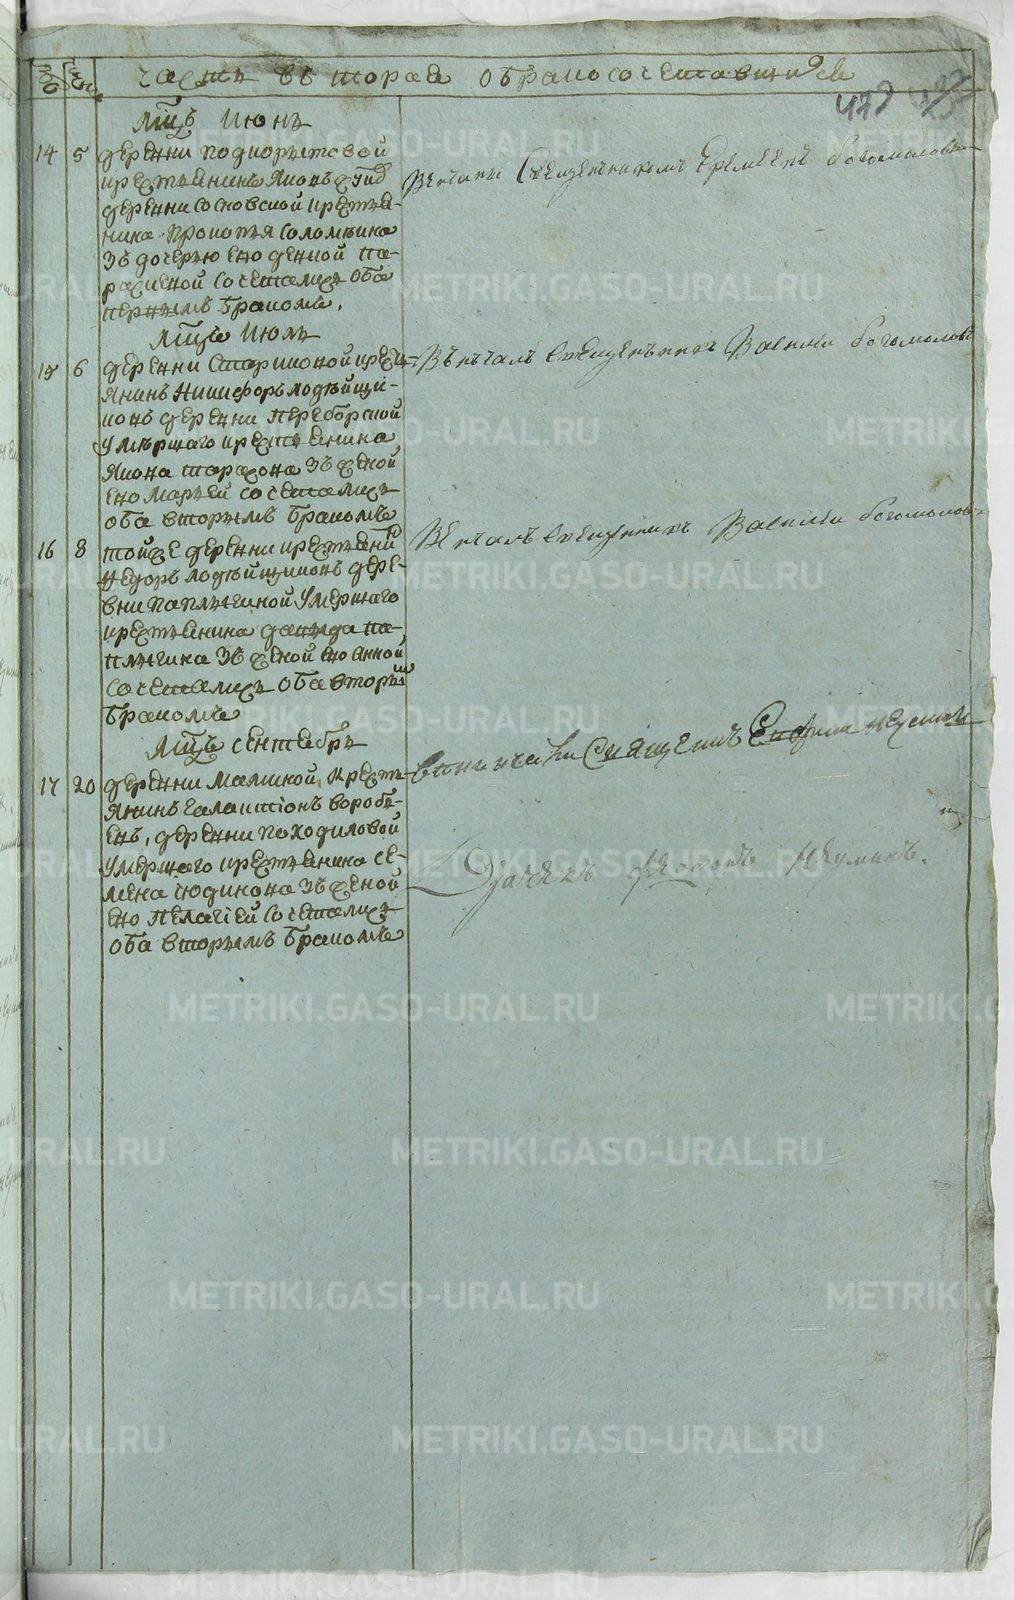 часть вторая о бракосочетавшихся
479
мцъ Июнь
14 5 деревни подкорытовой
крестьянинъ Яковъ
деревни сосновской крестья-
нина Прокопья Соломѣина
зъ дочерью ево девкой па-
раскевой сочетались оба
первымъ бракомъ.
Венчаны Священникомъ Еремеемъ Богомоловымъ
мцъ Июль
15 6 деревни Стариковой крестъ-
янинъ Никифоръ лодѣйщи-
ковъ деревни переборской
умѣршаго крестьянина
Якова тарасова зъ женой
ево Марьей сочетались
оба вторымъ бракомъ
Вѣнчалъ священникъ Василий Богомоловъ
16 8 той же деревни крестьянинъ
Федоръ лодѣйщиковъ дере-
вни паплыгиной умершаго
крестьянина давыда па-
плыгина зъ женой ево анной
сочетались оба вторымъ
бракомъ
Венчалъ священникъ Василий Богомоловъ
мцъ сентебрь
17 20 деревни малиской, крест-
янинъ Галактионъ воробь-
евъ, деревни походиловой
умершаго крестьянина се-
мена Юдинова зъ женой
ево Пелагией сочетались
оба вторымъ бракомъ
Священникъ
Дьячекъ Федоръ
METRIKI.GASO-URAL.RU